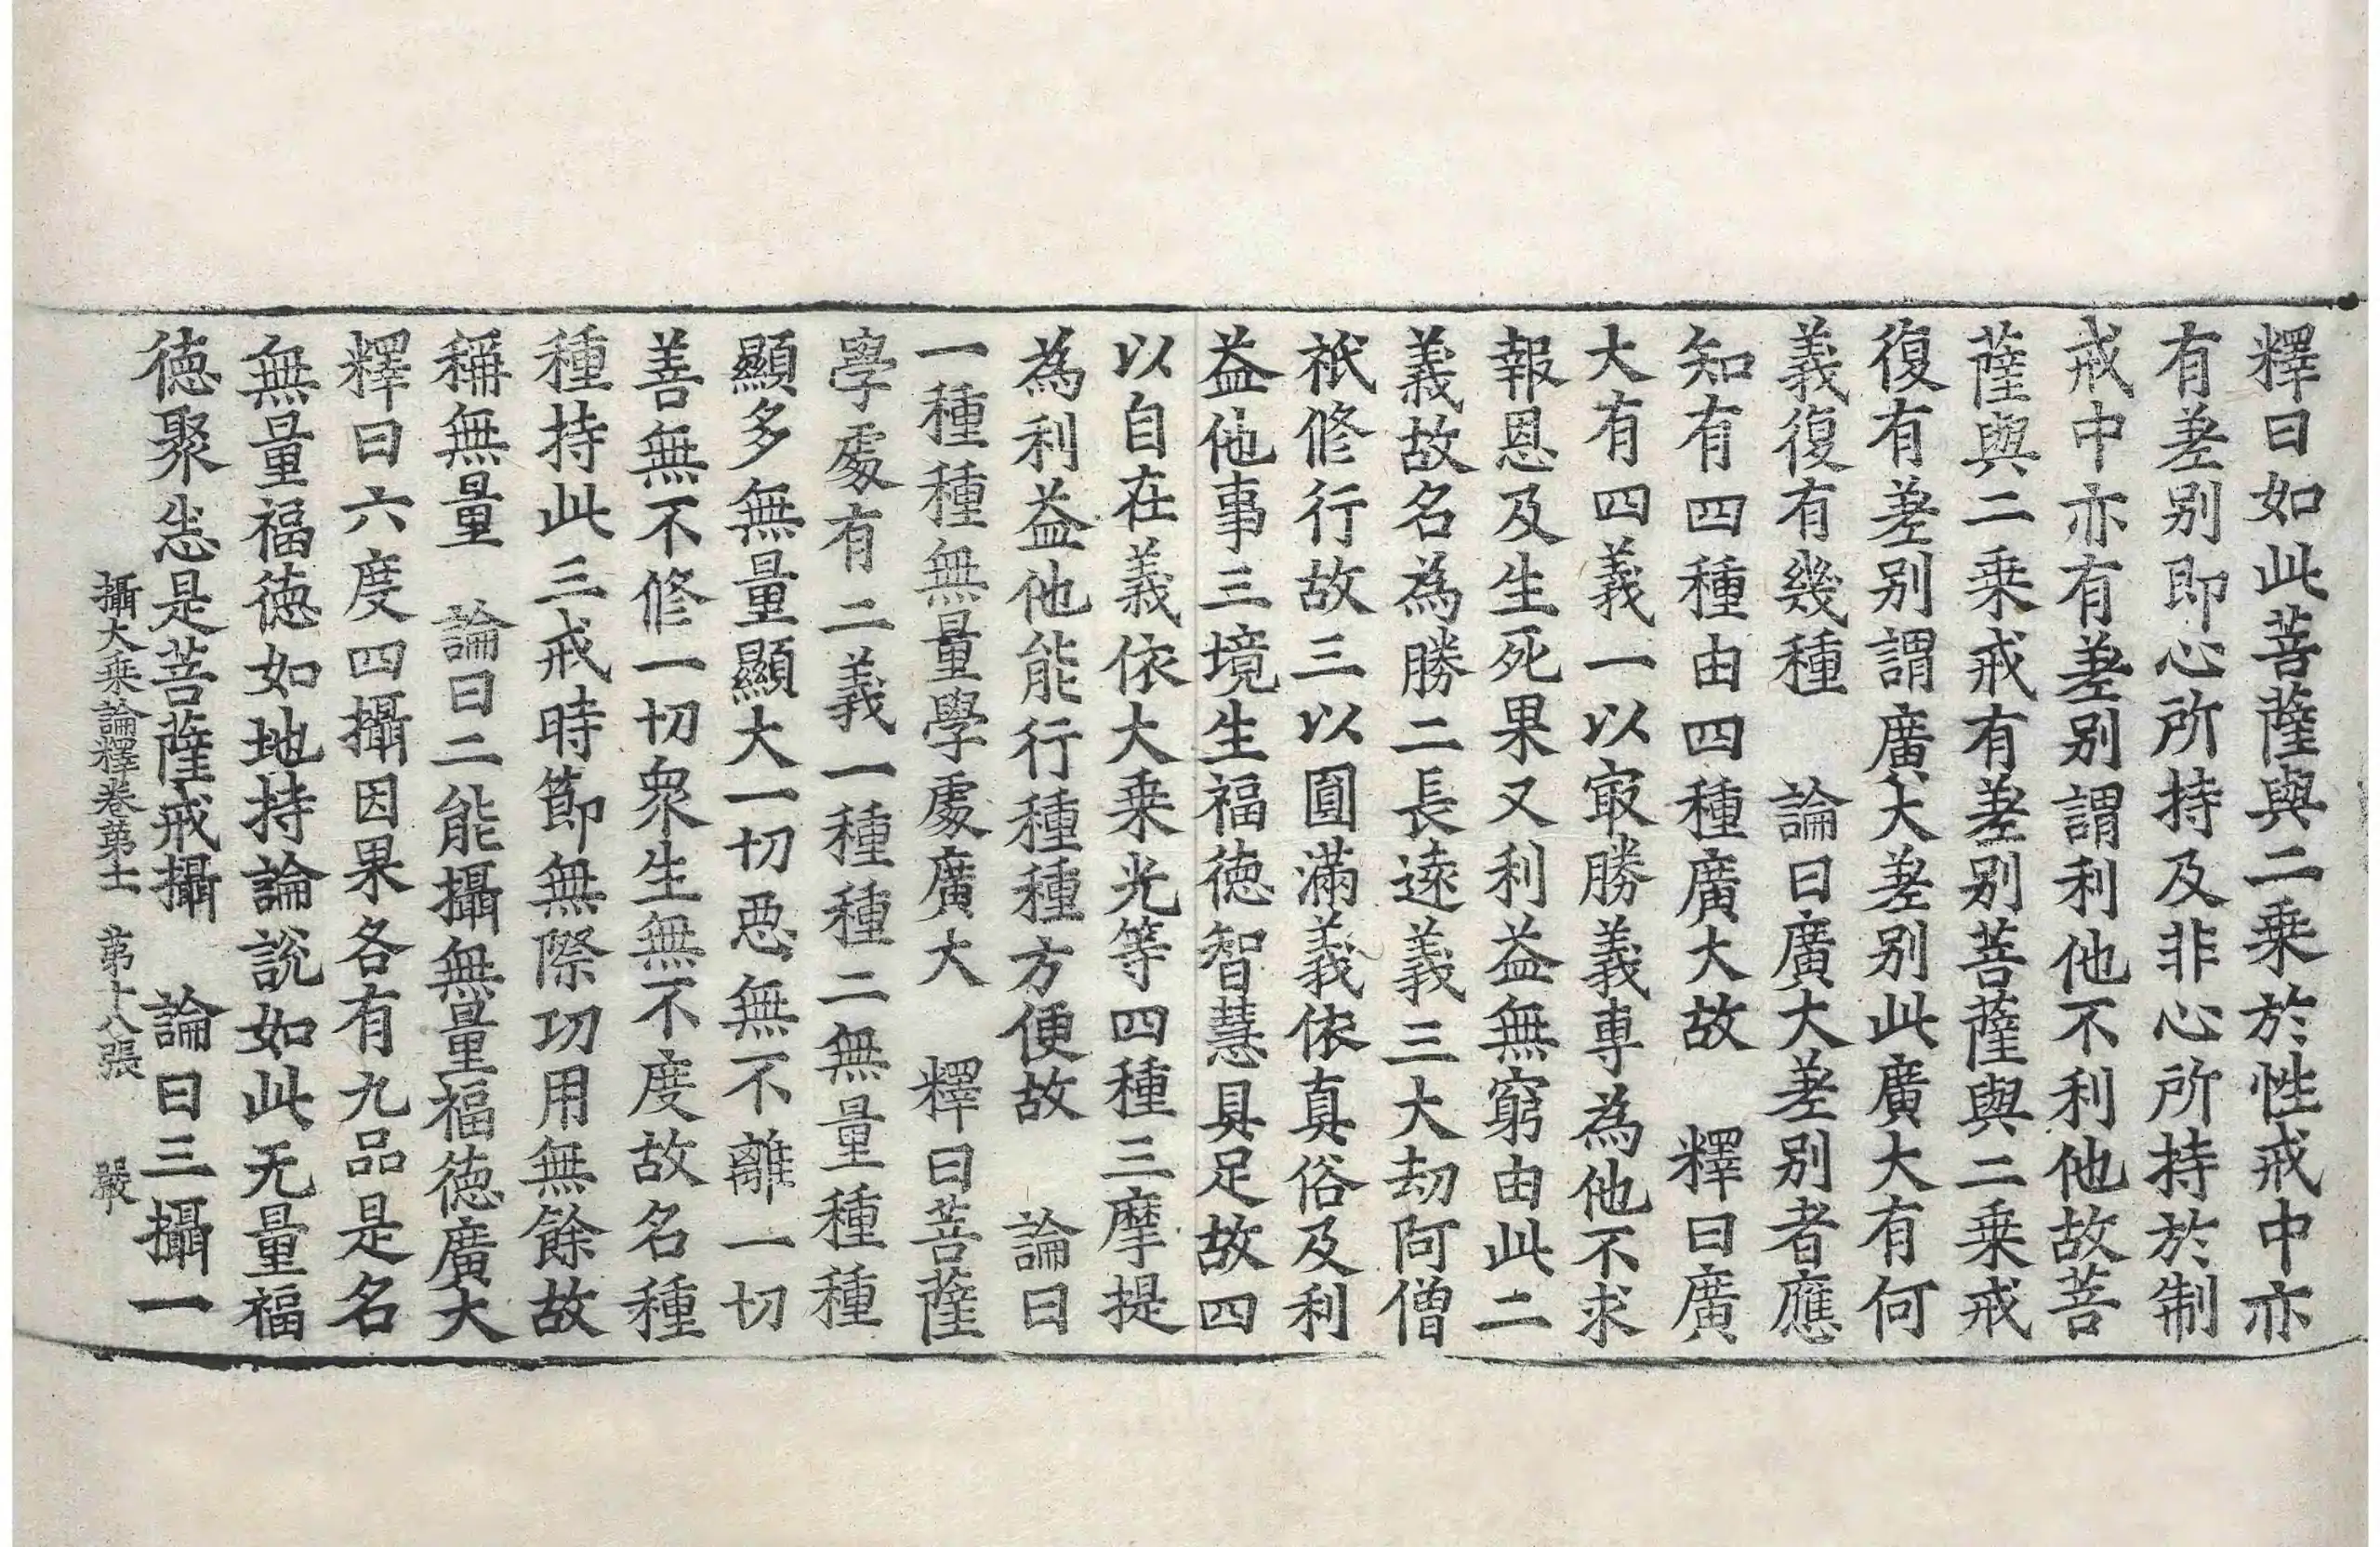 釋曰如此菩薩與二乗於性戒中亦
有差别即心所持及非心所持於制
戒中亦有差别謂利他不利他故菩
薩與二乗戒有差别菩薩與二乗戒
復有差别謂廣大差别此廣大有何
義復有幾種　論曰廣大差别者應
知有四種由四種廣大故　釋曰廣
大有四義一以㝡勝義專為他不求
報恩及生死果又利益無窮由此二
義故名為勝二長遠義三大劫阿僧
祇修行故三以圓滿義依真俗及利
益他事三境生福德智慧具足故四
以自在義依大乗光等四種三摩提
為利益他能行種種方便故　論曰
一種種無量學處廣大　釋曰菩薩
學處有二義一種種二無量種種
顯多無量顯大一切惡無不離一切
善無不修一切衆生無不度故名種
種持此三戒時節無際功用無餘故
稱無量　論曰二能攝無量福德廣大
釋曰六度四攝因果各有九品是名
無量福德如地持論說如此无量福
德聚悉是菩薩戒攝　論曰三攝一
攝大乗論釋卷第十一　第十八張　嚴